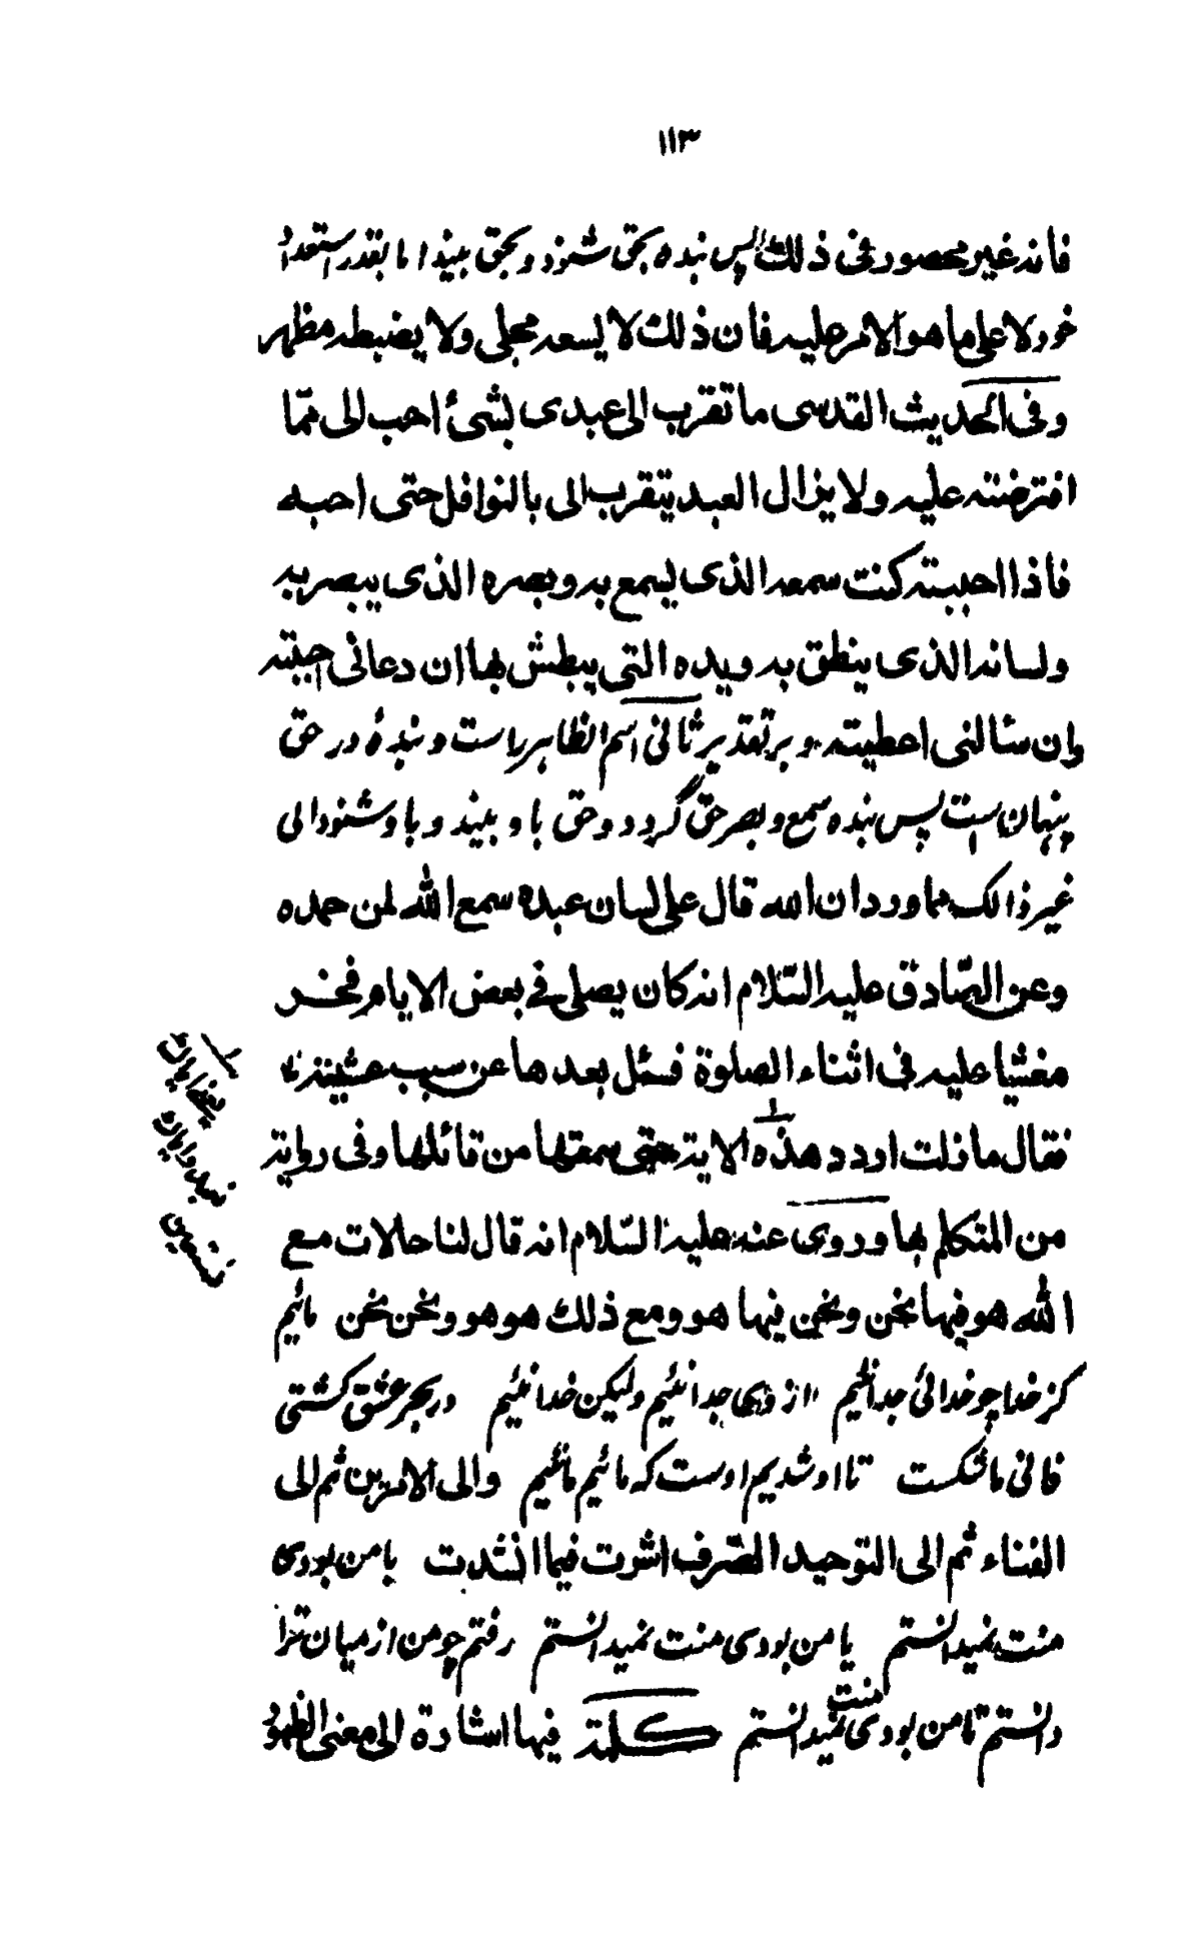 ١١٣
فانه غير محصور فى ذلك پس بنده بحق شنود و بحق بیند اما بقدر استعداد
خود لا على ما هو الامر عليه فان ذلك لا يسعه مجلى ولا يضبطه مظهر
وفى الحديث القدسى ما تقرب الى عبدى بشئ احب الى مما
افترضته عليه ولا يزال العبد يتقرب الى بالنوافل حتى احبه
فاذا احببته كنت سمعه الذى يسمع به وبصره الذى يبصر به
ولسانه الذى ينطق به ويده التى يبطش بها ان دعانى اجبته
وان سئالنى اعطيته و بر تقدیر ثانى اسم الظاهر راست و بنده در حق
پنهان است پس بنده سمع و بصر حق گردد و حق باو بیند و باو شنود الى
غير ذالك مما ورد ان الله قال على لسان عبده سمع الله لمن حمده
وعن الصّادق عليه السّلام انه كان يصلى فى بعض الايام فخر
مغشيا عليه فى اثناء الصلوة فسئل بعدها عن سبب غشيته
فقال ما زلت اردد هذه الاية حتى سمعتها من قائلها وفى رواية
من المتكلم بها وروى عنه عليه السّلام انه قال لنا حالات مع
الله هو فيها نحن ونحن فيها هو ومع ذلك هو هو ونحن نحن مائیم
کز خدا چو خدائی جدا نئیم از وی جدا نئیم ولیکن خدا نئیم در بحر عشق کشتی
فانی ما شکست تا او شدیم اوست که مائیم مائیم والى الامرين ثم الى
الفناء ثم الى التوحيد الصّرف اشرت فيما انشدت با من بودی
منت نمیدانستم یا من بودی منت نمیدانستم رفتم چو من از میان ترا
دانستم تا من بودی منت نمیدانستم كلمة فيها اشارة الى معنى الظهور
يعنى اياك
نعبد واياك
نستعين